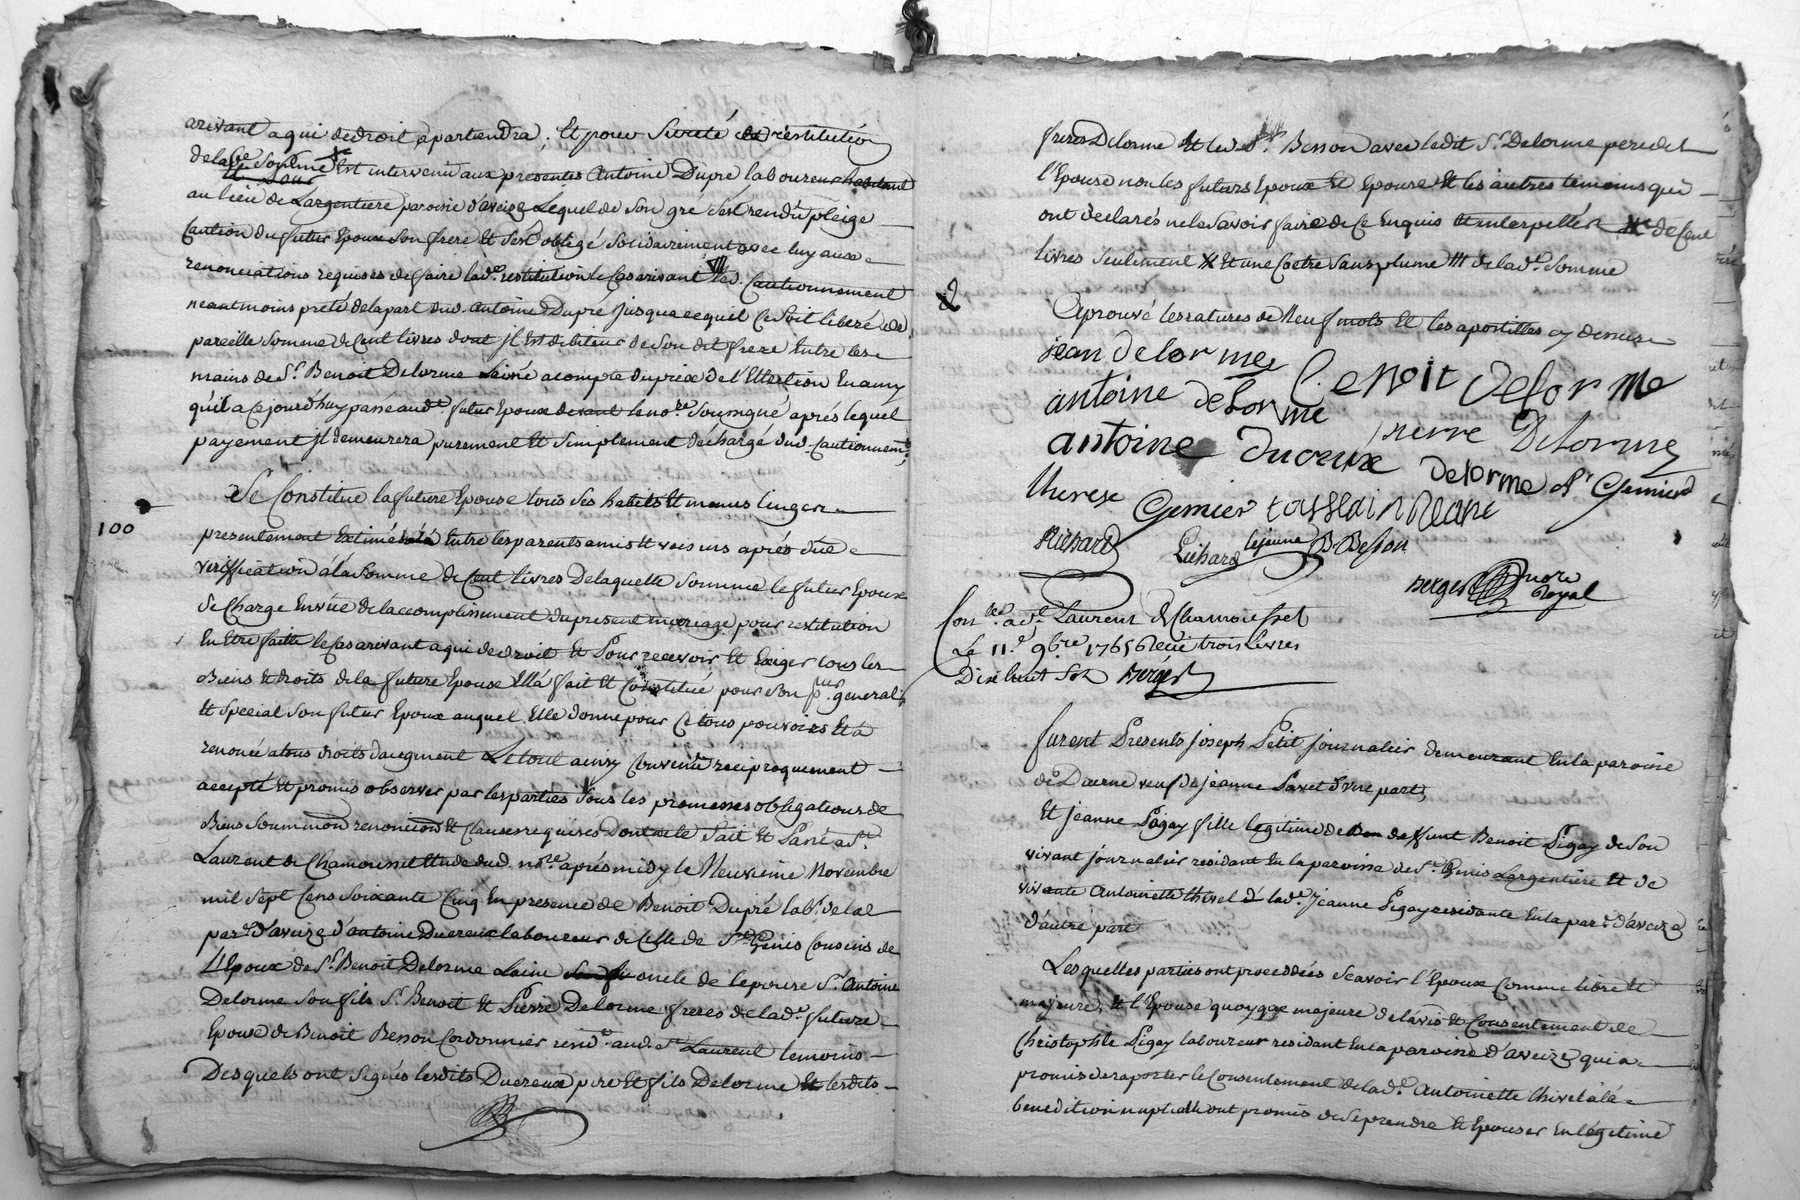 arivant a qui de droit apartiendra ; Et pour Sureté et restitution
de lad.e Somme Est intervenu aux presentes Antoine Dupré laboureur habitant
au lieu de Largentiere paroisse d'aveize Lequel de Son gré S'est rendu pleige
Caution du futur Epoux Son frere Et S'est obligé Solidairement avec luy aux
renonciations requises de faire lad.e restitution le Cas arivant led. Cautionnement
neantmoins preté de la part dud. Antoine Dupré jusqua ce quel Ce Soit liberé de
pareille Somme de Cent livres dont jl Est debiteur de Son dit frere Entre les
mains de S.r Benoit Delorme Lainé a compte du prix de l'Ellection En amy
qu'il a Cejourd'huy passé aud.t futur Epoux devant le no.re Soussigné aprés lequel
payement jl demeurera purement Et Simplement déchargé dud. Cautionnem.t
Se Constitue la future Epouse tous Ses habits Et menus linges
100
presentement Estimés Entre les parents amis Et voisins aprés düe
veriffication á la Somme de Cent livres De laquelle Somme le futur Epoux
Se Charge En vüe de l'accomplissement du present mariage pour restitution
En Etre faitte le Cas arivant a qui de droit Et Pour recevoir Et Exiger tous les
Biens Et droits de la future Epouse Ella fait Et Constitué pour Son p.ur general
Et Special Son futur Epoux auquel Elle donne pour Ce tous pouvoirs Et a
renoncé a tous droits d'augment Le tout ainsy Convenu reciproquement
accepté Et promis observer par les parties Sous les promesses obligations de
Biens Soummission renonciations Et Clauses requises Dont acte Fait Et Passé a S.t
Laurent de Chamousset Etude dud. no.re aprés midy le Neuvieme Novembre
mil Sept Cens Soixante Cinq En presence de Benoit Dupré lab.r de lad.
par.e d'aveize d'antoine Ducreux laboureur de Celle de S.t Genis Cousins de
L'Epoux de S.r Benoit Delorme Laine oncle de lepouse S.r Antoine
Delorme Son fils S.r Benoit Et Pierre Delorme freres de lad.e future
Epouse de Benoit Besson Cordonnier resid.t aud. S.t Laurent temoins
Desquels ont Signés lesdits Ducreux pere Et fils Delorme Et lesdits
freres Delorme Et led. S.r Besson avec ledit S.r Delorme pere de
l'Epouse non les futurs Epoux Et Epouse Et les autres temoins qui
ont declarés ne le Savoir faire de Ce Enquis Et interpellés de Cent
livres Seulement Et une Coetre Sans plume de lad.e Somme
Aprouvé les ratures de Neuf mots Et les apostilles cy dessus
jean delorme
Benoit Delorme
antoine delorme
pierre Delorme
antoine Ducreux
Delorme
Therese Gemier
Richard
Richard lejeune B Besson
Berger no.re Royal
Con.lé a S.t Laurent de Chamousset
Le 11.e 9bre 1765 Recü trois livres
Dix huit Sols Berger
furent Presents joseph Petit journalier demeurant En la paroisse
de Duerne veuf de jeanne d'Une part,
Et jeanne Pigay fille legitime de deffunt Benoit Pigay de Son
vivant journalier residant En la paroisse de S.t Genis Largentiere Et de
vivante Antoinette thivel lad.e jeanne Pigay residante En la par.e d'aveize
d'autre part
Lesquelles parties ont procedées Scavoir l'Epoux Comme libre Et
majeure, Et l'Epouse quoyque majeure de l'avis Et Consentement de
Christophle Pigay laboureur residant En la paroisse d'aveize qui a
promis de raporter le Consentement de lad.e Antoinette thivel à la
benediction nuptiale ont promis de Se prendre Et Epouser En legitime